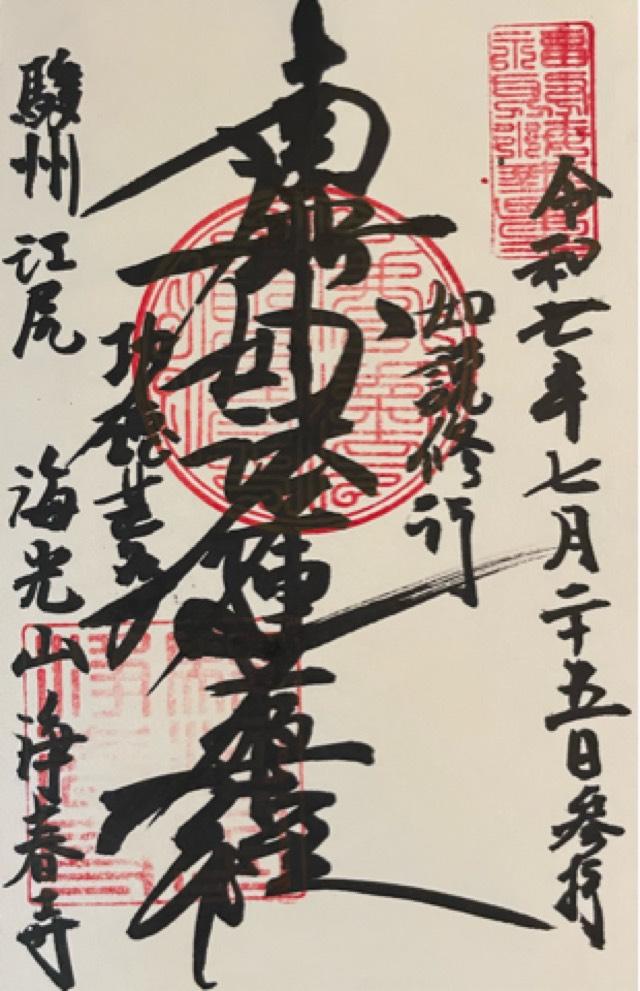 令和七年七月二十五日参拝
如説修行
南無妙法蓮華経
功徳甚多
駿州 江尻 海光山 浄春寺